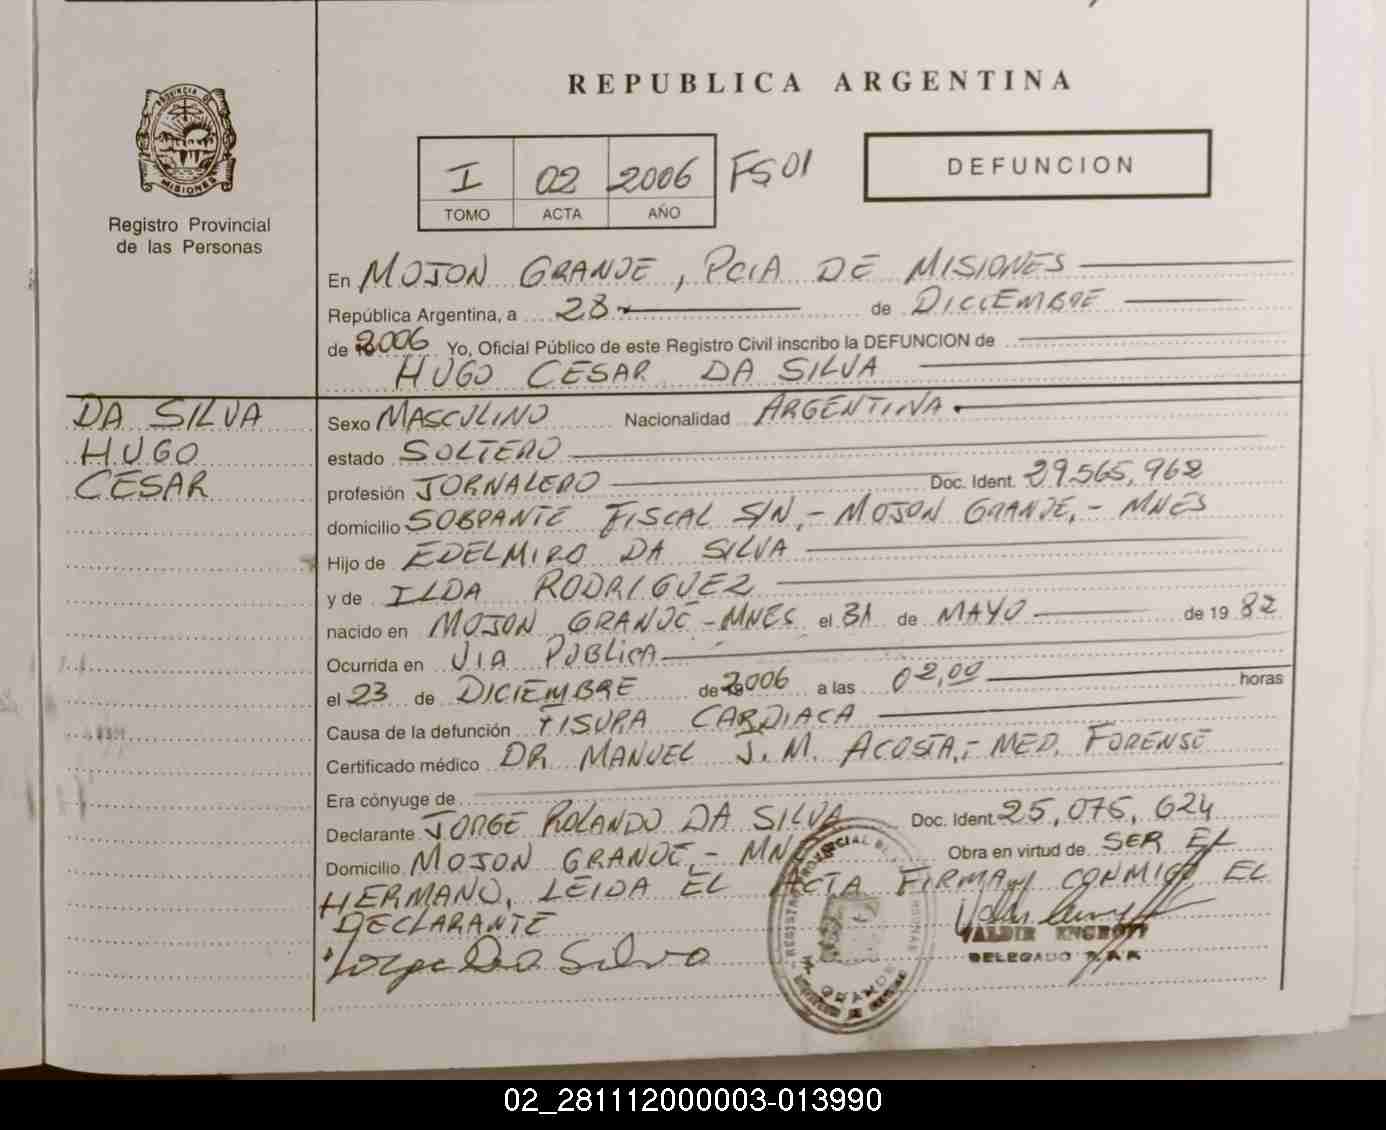 REPUBLICA ARGENTINA
PROVINCIA DE
MISIONES
Registro Provincial
de las Personas
I 02 2006 FS 01
TOMO ACTA AÑO
DEFUNCION
En MOJON GRANDE, PCIA DE MISIONES
República Argentina, a 28 de DICIEMBRE
de 2006 Yo, Oficial Público de este Registro Civil inscribo la DEFUNCION de
HUGO CESAR DA SILVA
DA SILVA
HUGO
CESAR
Sexo MASCULINO Nacionalidad ARGENTINA
estado SOLTERO
profesión JORNALERO Doc. Ident. 29.565,962
domicilio SOBRANTE FISCAL S/N,- MOJON GRANDE,- MNES
Hijo de EDELMIRO DA SILVA
y de ILDA RODRIGUEZ
nacido en MOJON GRANDE - MNES el 31 de MAYO de 19 82
Ocurrida en VIA PUBLICA
el 23 de DICIEMBRE de 2006 a las 02,00 horas
Causa de la defunción FISURA CARDIACA
Certificado médico DR MANUEL J. M. ACOSTA,- MED. FORENSE
Era cónyuge de
Declarante JORGE ROLANDO DA SILVA Doc. Ident. 25,075,624
Domicilio MOJON GRANDE,- MNES Obra en virtud de SER EL
HERMANO, LEIDA EL ACTA FIRMA CONMIGO EL
DECLARANTE
Jorge Da Silva
VALDIR
DELEGADO
GRANDE
02_281112000003-013990